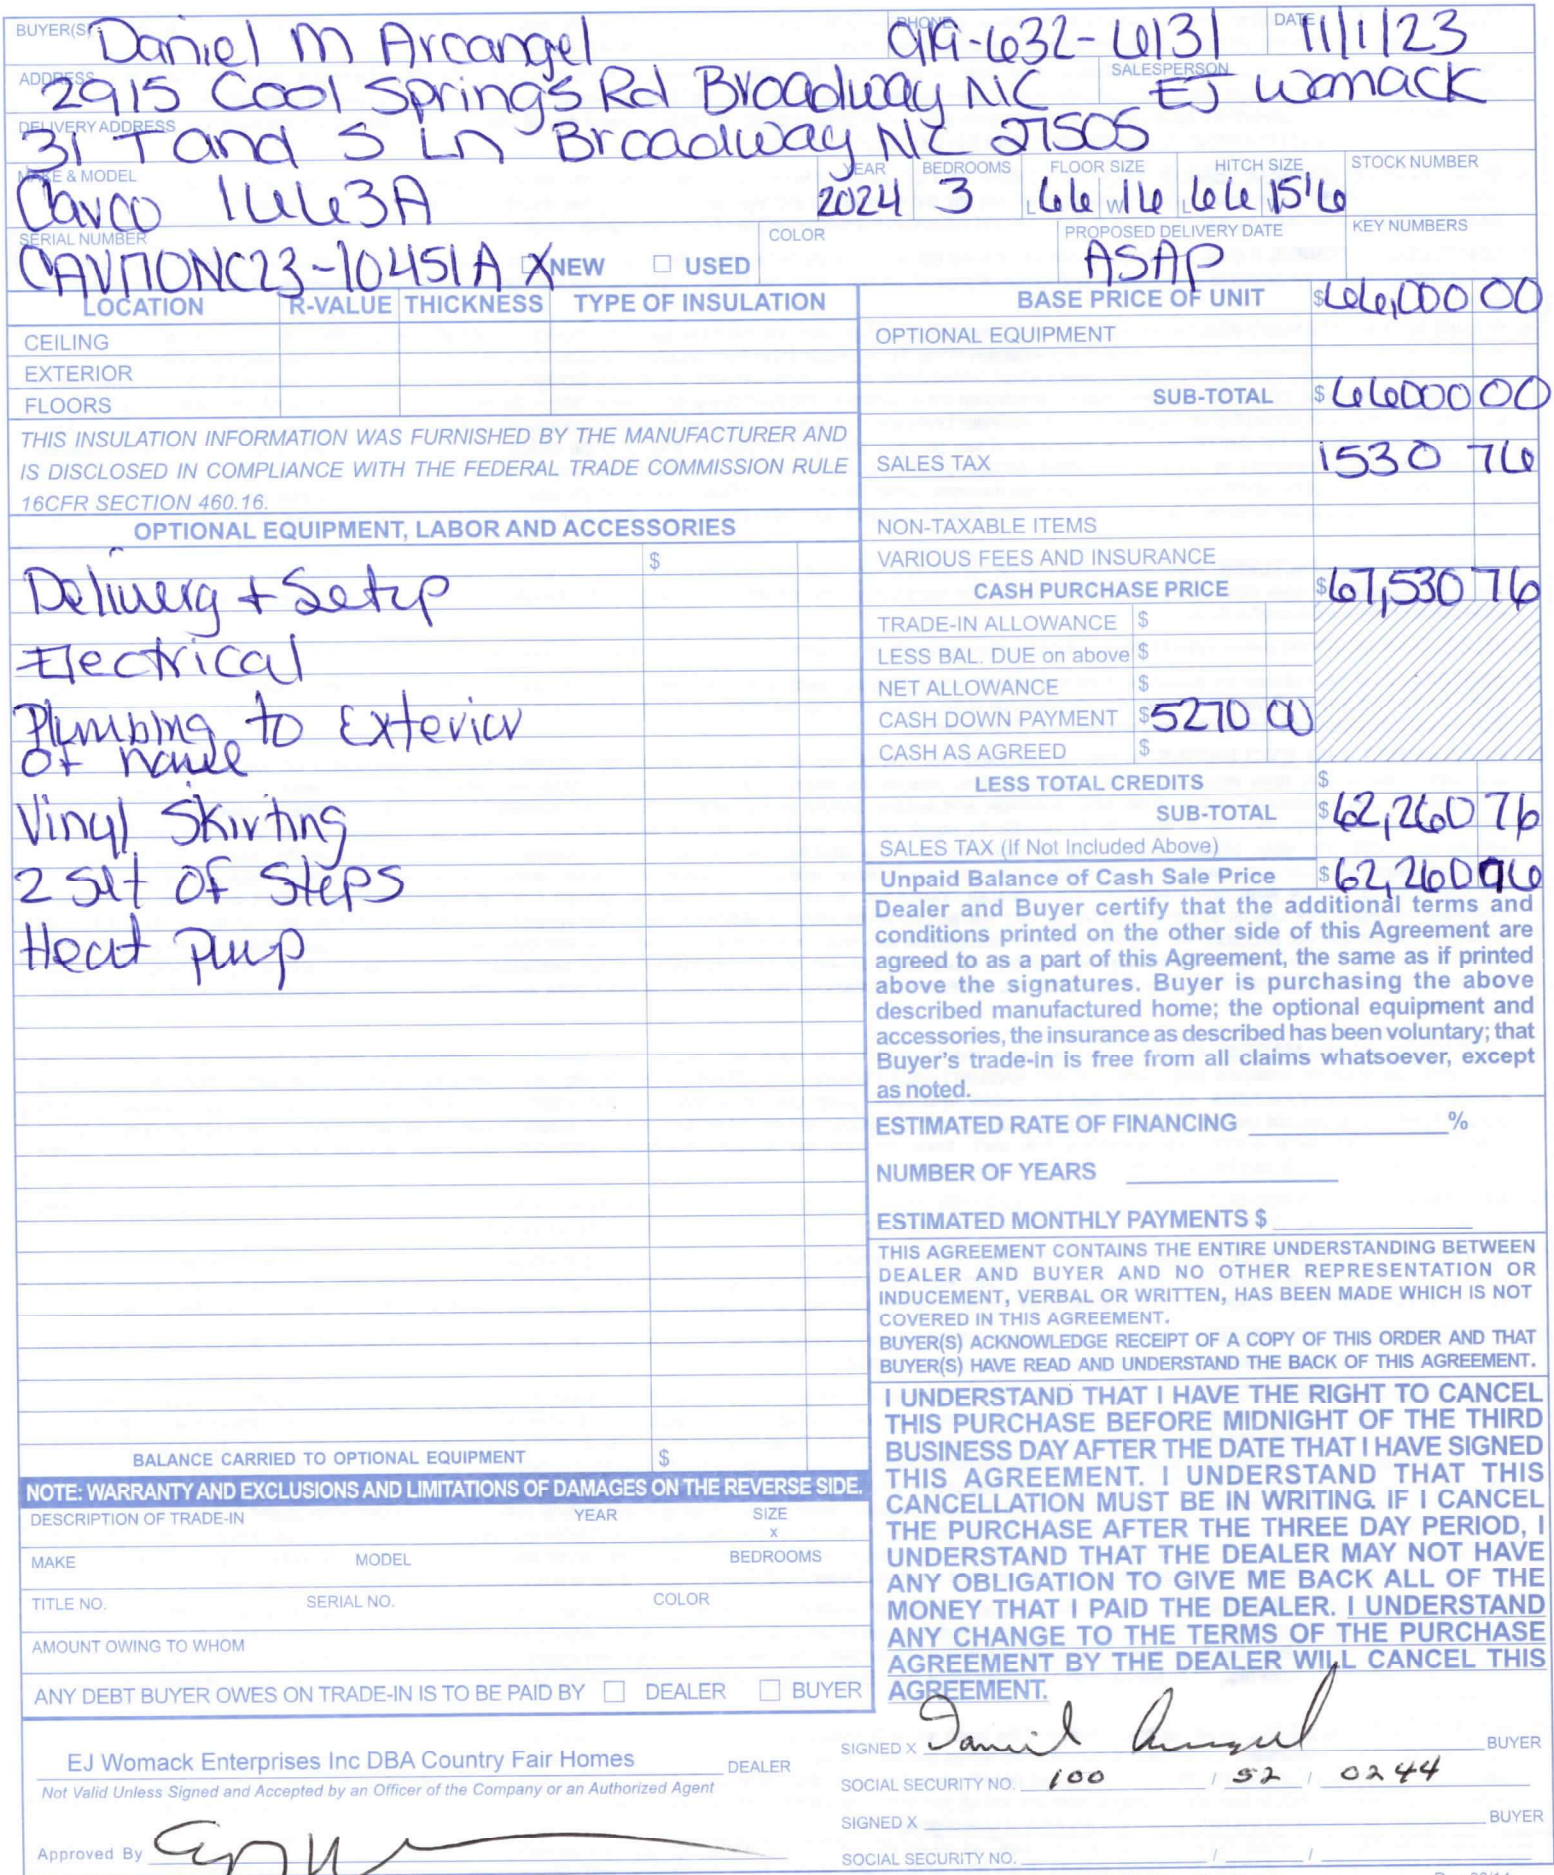 BUYER(S) Daniel M Arcangel PHONE 919-632-6131 DATE 11/1/23
ADDRESS 2915 Cool Springs Rd Broadway NC SALESPERSON EJ Womack
DELIVERY ADDRESS 31 T and S Ln Broadway NC 27505
MAKE & MODEL Cavco 1663A YEAR 2024 BEDROOMS 3 FLOOR SIZE L 66 W 16 HITCH SIZE L 66 15'6 STOCK NUMBER
SERIAL NUMBER X NEW ☐ USED COLOR PROPOSED DELIVERY DATE ASAP KEY NUMBERS
LOCATION R-VALUE THICKNESS TYPE OF INSULATION
CEILING
EXTERIOR
FLOORS
THIS INSULATION INFORMATION WAS FURNISHED BY THE MANUFACTURER AND
IS DISCLOSED IN COMPLIANCE WITH THE FEDERAL TRADE COMMISSION RULE
16CFR SECTION 460.16.
OPTIONAL EQUIPMENT, LABOR AND ACCESSORIES
$
Delivery + Setup
Electrical
Plumbing to Exterior
of house
Vinyl Skirting
2 set of Steps
Heat pump
BALANCE CARRIED TO OPTIONAL EQUIPMENT $
NOTE: WARRANTY AND EXCLUSIONS AND LIMITATIONS OF DAMAGES ON THE REVERSE SIDE.
DESCRIPTION OF TRADE-IN YEAR SIZE
x
MAKE MODEL BEDROOMS
TITLE NO. SERIAL NO. COLOR
AMOUNT OWING TO WHOM
ANY DEBT BUYER OWES ON TRADE-IN IS TO BE PAID BY ☐ DEALER ☐ BUYER
BASE PRICE OF UNIT $66,000 00
OPTIONAL EQUIPMENT
SUB-TOTAL $66000 00
SALES TAX 1530 76
NON-TAXABLE ITEMS
VARIOUS FEES AND INSURANCE
CASH PURCHASE PRICE $67,530 76
TRADE-IN ALLOWANCE $
LESS BAL. DUE on above $
NET ALLOWANCE $
CASH DOWN PAYMENT $5270 00
CASH AS AGREED $
LESS TOTAL CREDITS $
SUB-TOTAL $62,260 76
SALES TAX (If Not Included Above)
Unpaid Balance of Cash Sale Price $62,260
Dealer and Buyer certify that the additional terms and
conditions printed on the other side of this Agreement are
agreed to as a part of this Agreement, the same as if printed
above the signatures. Buyer is purchasing the above
described manufactured home; the optional equipment and
accessories, the insurance as described has been voluntary; that
Buyer's trade-in is free from all claims whatsoever, except
as noted.
ESTIMATED RATE OF FINANCING %
NUMBER OF YEARS
ESTIMATED MONTHLY PAYMENTS $
THIS AGREEMENT CONTAINS THE ENTIRE UNDERSTANDING BETWEEN
DEALER AND BUYER AND NO OTHER REPRESENTATION OR
INDUCEMENT, VERBAL OR WRITTEN, HAS BEEN MADE WHICH IS NOT
COVERED IN THIS AGREEMENT.
BUYER(S) ACKNOWLEDGE RECEIPT OF A COPY OF THIS ORDER AND THAT
BUYER(S) HAVE READ AND UNDERSTAND THE BACK OF THIS AGREEMENT.
I UNDERSTAND THAT I HAVE THE RIGHT TO CANCEL
THIS PURCHASE BEFORE MIDNIGHT OF THE THIRD
BUSINESS DAY AFTER THE DATE THAT I HAVE SIGNED
THIS AGREEMENT. I UNDERSTAND THAT THIS
CANCELLATION MUST BE IN WRITING. IF I CANCEL
THE PURCHASE AFTER THE THREE DAY PERIOD, I
UNDERSTAND THAT THE DEALER MAY NOT HAVE
ANY OBLIGATION TO GIVE ME BACK ALL OF THE
MONEY THAT I PAID THE DEALER. I UNDERSTAND
ANY CHANGE TO THE TERMS OF THE PURCHASE
AGREEMENT BY THE DEALER WILL CANCEL THIS
AGREEMENT.
EJ Womack Enterprises Inc DBA Country Fair Homes DEALER
Not Valid Unless Signed and Accepted by an Officer of the Company or an Authorized Agent
Approved By
SIGNED X Daniel Arcangel BUYER
SOCIAL SECURITY NO. 100 / 52 / 0244
SIGNED X BUYER
SOCIAL SECURITY NO. / /